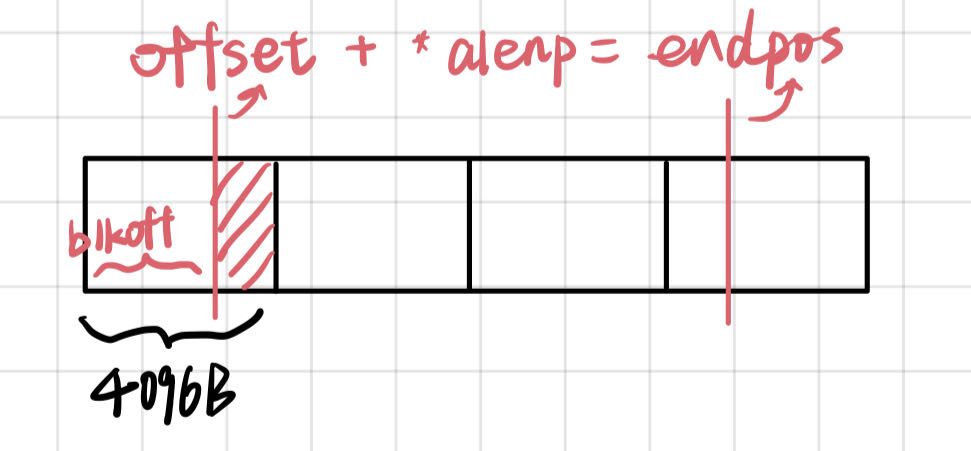 offset + *alenp = endpos
blkoff
4096B